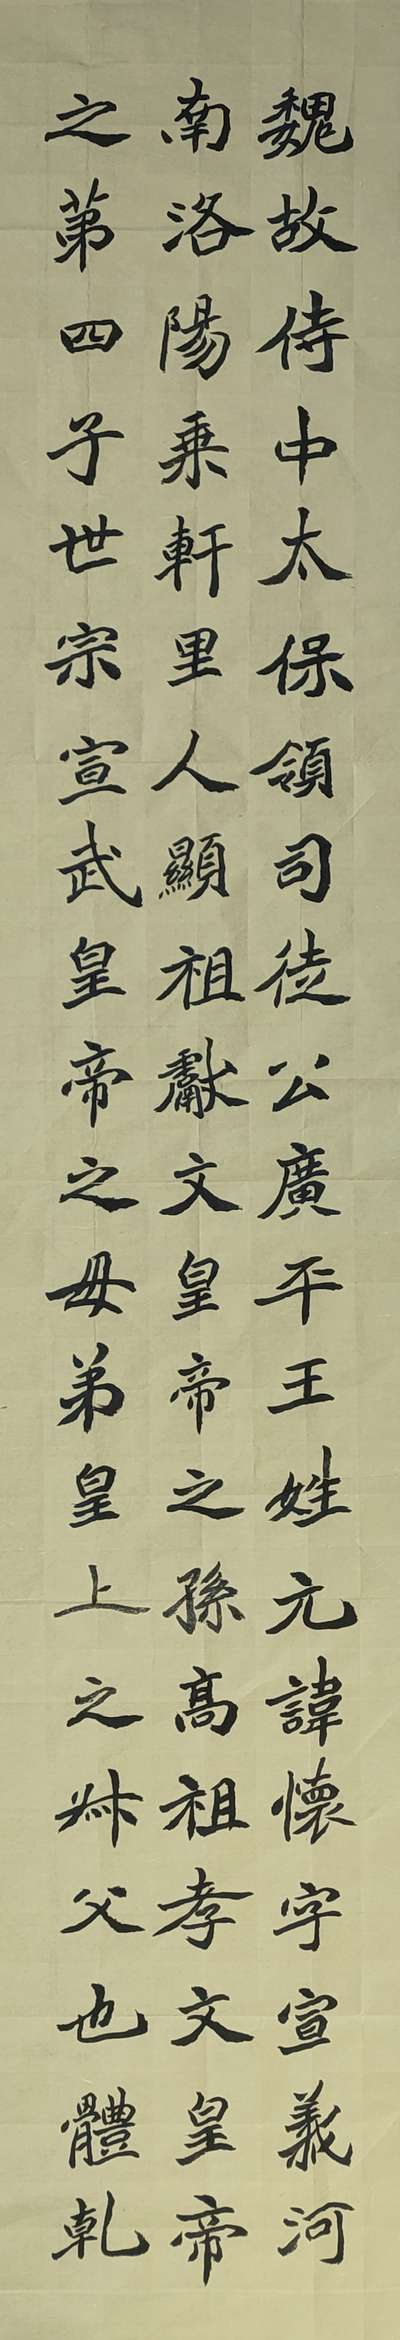 魏故侍中太保領司徒公廣平王姓元諱懷字宣義河
南洛陽乗軒里人顯祖獻文皇帝之孫高祖孝文皇帝
之第四子世宗宣武皇帝之母弟皇上之叔父也體乹